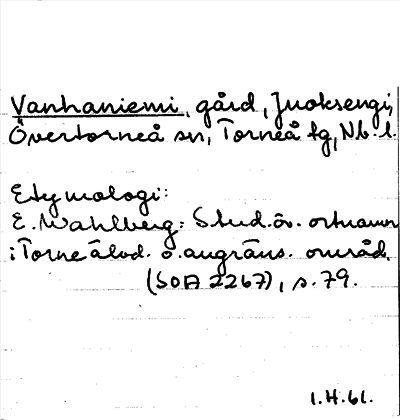 Vanhaniemi, gård, Juoksengi,
Övertorneå sn, Torneå tg, Nb. l.
Etymologi:
E. Wahlberg: Stud. öv. ortnamn
i Torne älvd. o. angräns. områd.
(SOA 2267), s. 79.
1.H.61.